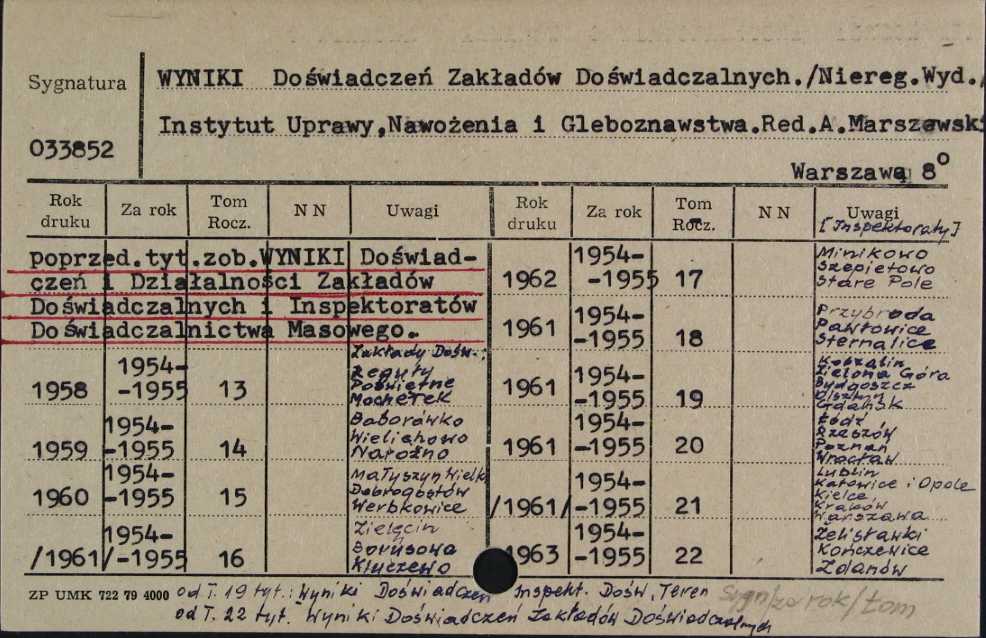 Sygnatura
033852
WYNIKI Doświadczeń Zakładów Doświadczalnych./Niereg.Wyd./
Instytut Uprawy,Nawożenia i Gleboznawstwa.Red.A.Marszewski
Warszawa 8°
Rok druku Za rok Tom Rocz. NN Uwagi Rok druku Za rok Tom Rocz. NN Uwagi
[Inspektoraty]
poprzed.tyt.zob.WYNIKI Doświad-
czeń i Działalności Zakładów
Doświadczalnych i Inspektoratów
Doświadczalnictwa Masowego.
1958 1954-1955 13
Zakłady Dośw.:
Reguły
Poświętne
Mochełek
1959 1954-1955 14
Baborówko
Wielichowo
Narożno
1960 1954-1955 15
Małuszyn Wielki
Dobrogostów
Werbkowice
/1961/ 1954-1955 16
Zielęcin
Borusowa
Kluczewo
1962 1954-1955 17
Minikowo
Szepietowo
Stare Pole
1961 1954-1955 18
Przybroda
Pawłowice
Sternalice
1961 1954-1955 19
Koszalin
Zielona Góra
Bydgoszcz
Olsztyn
Gdańsk
1961 1954-1955 20
Łódź
Rzeszów
Poznań
Wrocław
/1961/ 1954-1955 21
Lublin
Katowice i Opole
Kielce
Kraków
Warszawa
1963 1954-1955 22
Żelisławki
Kończewice
Zdanów
ZP UMK 722 79 4000
od T. 19 tyt.: Wyniki Doświadczeń Inspekt. Dośw. Teren
od T. 22 tyt. Wyniki Doświadczeń Zakładów Doświadczalnych
Sygn/za rok/tom